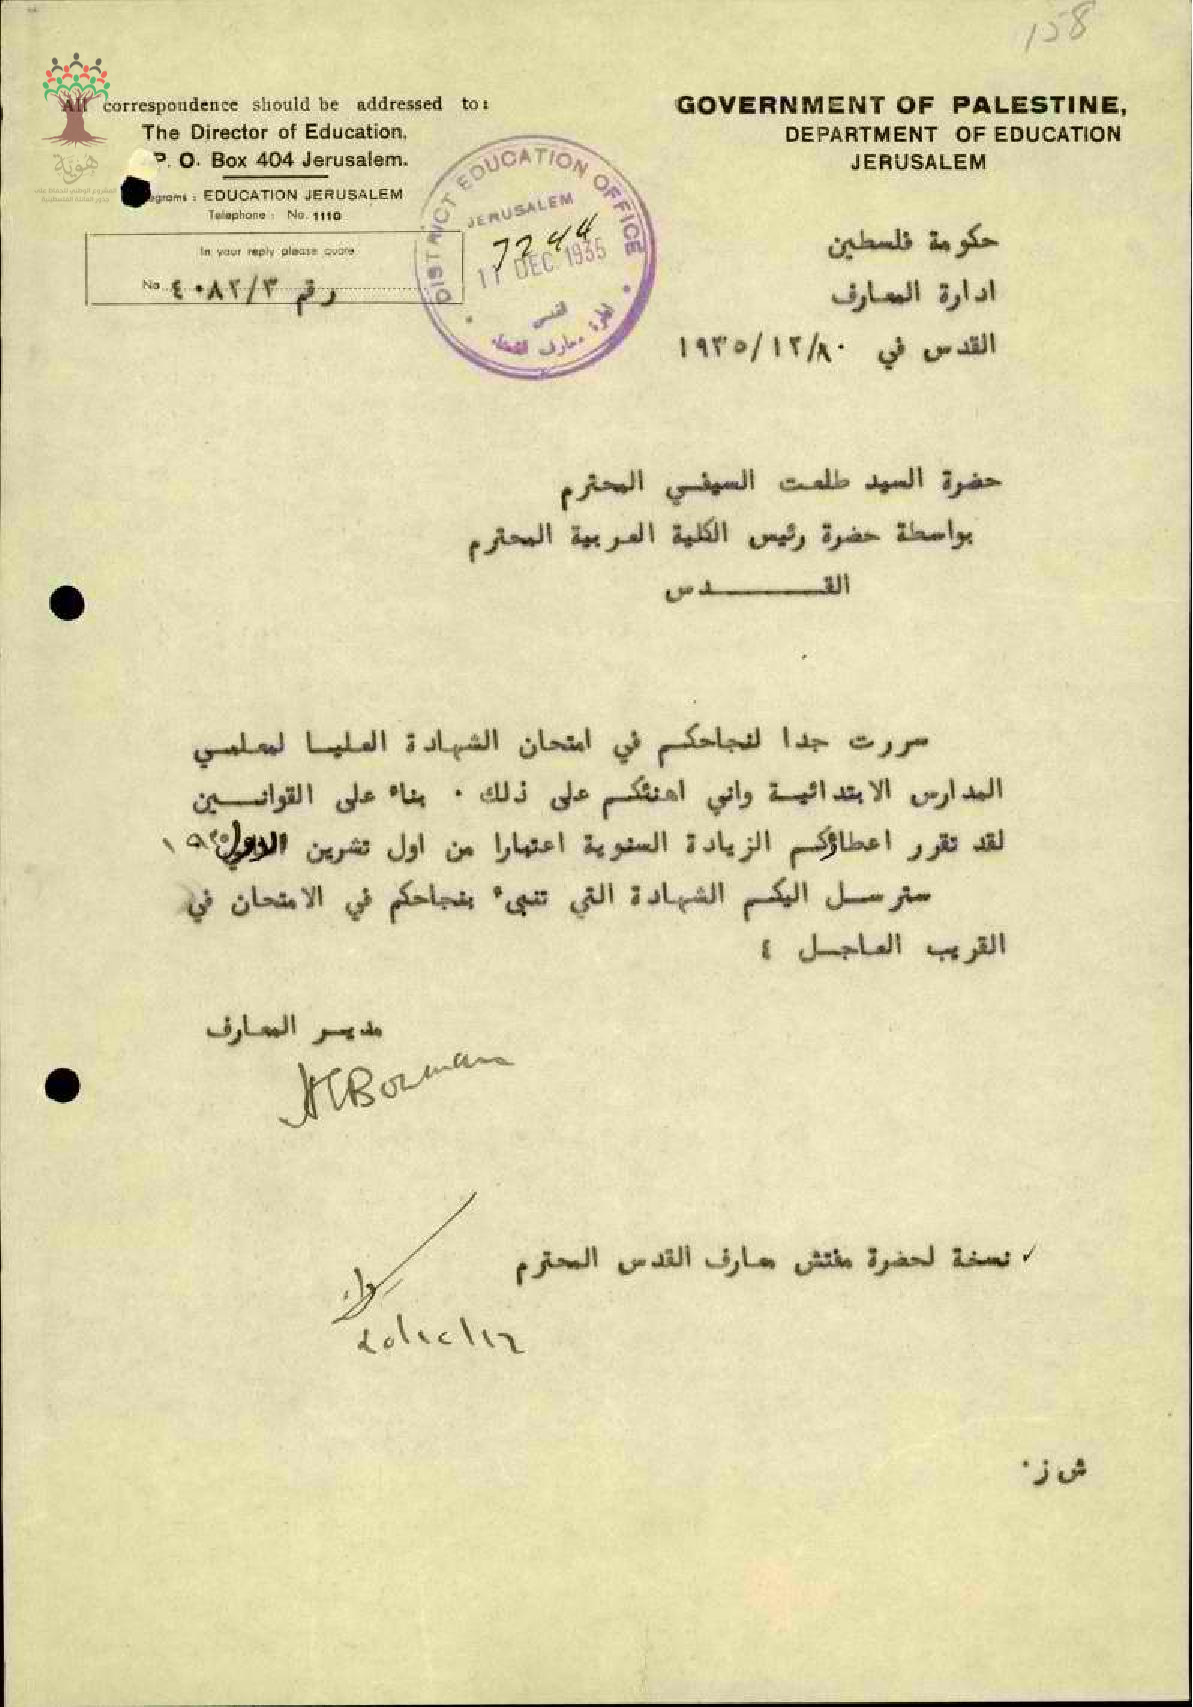 158
All correspondence should be addressed to:
The Director of Education.
P. O. Box 404 Jerusalem.
egrams: EDUCATION JERUSALEM
Telephone: No. 1110
In your reply please quote
No. رقم ٤٠٨٢/٣
GOVERNMENT OF PALESTINE,
DEPARTMENT OF EDUCATION
JERUSALEM
DISTRICT EDUCATION OFFICE
JERUSALEM
7244
11 DEC 1935
القدس
حكومة فلسطين
ادارة المعارف
القدس في ١٩٣٥/١٢/٨٠
حضرة السيد طلعت السيفي المحترم
بواسطة حضرة رئيس الكلية العربية المحترم
القـــــدس
سررت جدا لنجاحكم في امتحان الشهادة العليا لمعلمي
المدارس الابتدائية واني اهنئكم على ذلك . بناء على القوانين
لقد تقرر اعطاؤكم الزيادة السنوية اعتبارا من اول تشرين الاول
سترسل اليكم الشهادة التي تنبىء بنجاحكم في الامتحان في
القريب العاجل ؛
مدير المعارف
نسخة لحضرة مفتش معارف القدس المحترم
ش ز.
هوية